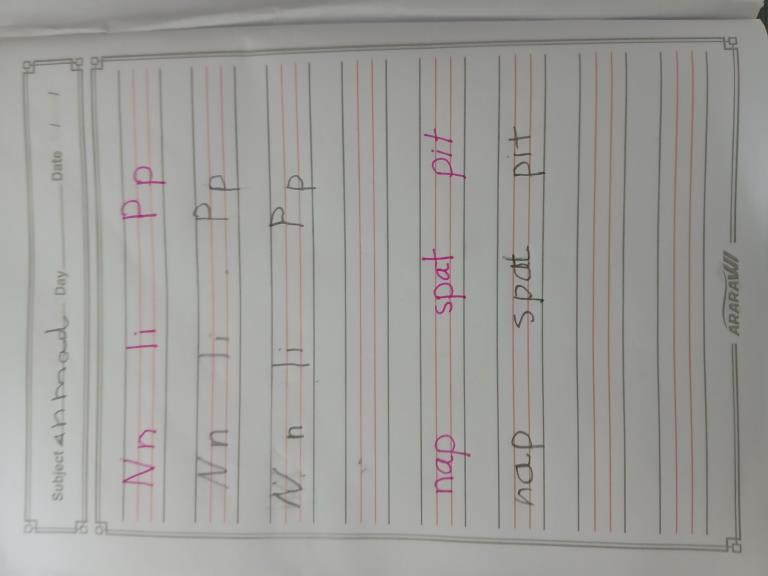 Subject ahmad Day Date / /
Nn Ii Pp
Nn Ii Pp
Nn Ii Pp
nap spat pit
nap spat pit
ARARAWI